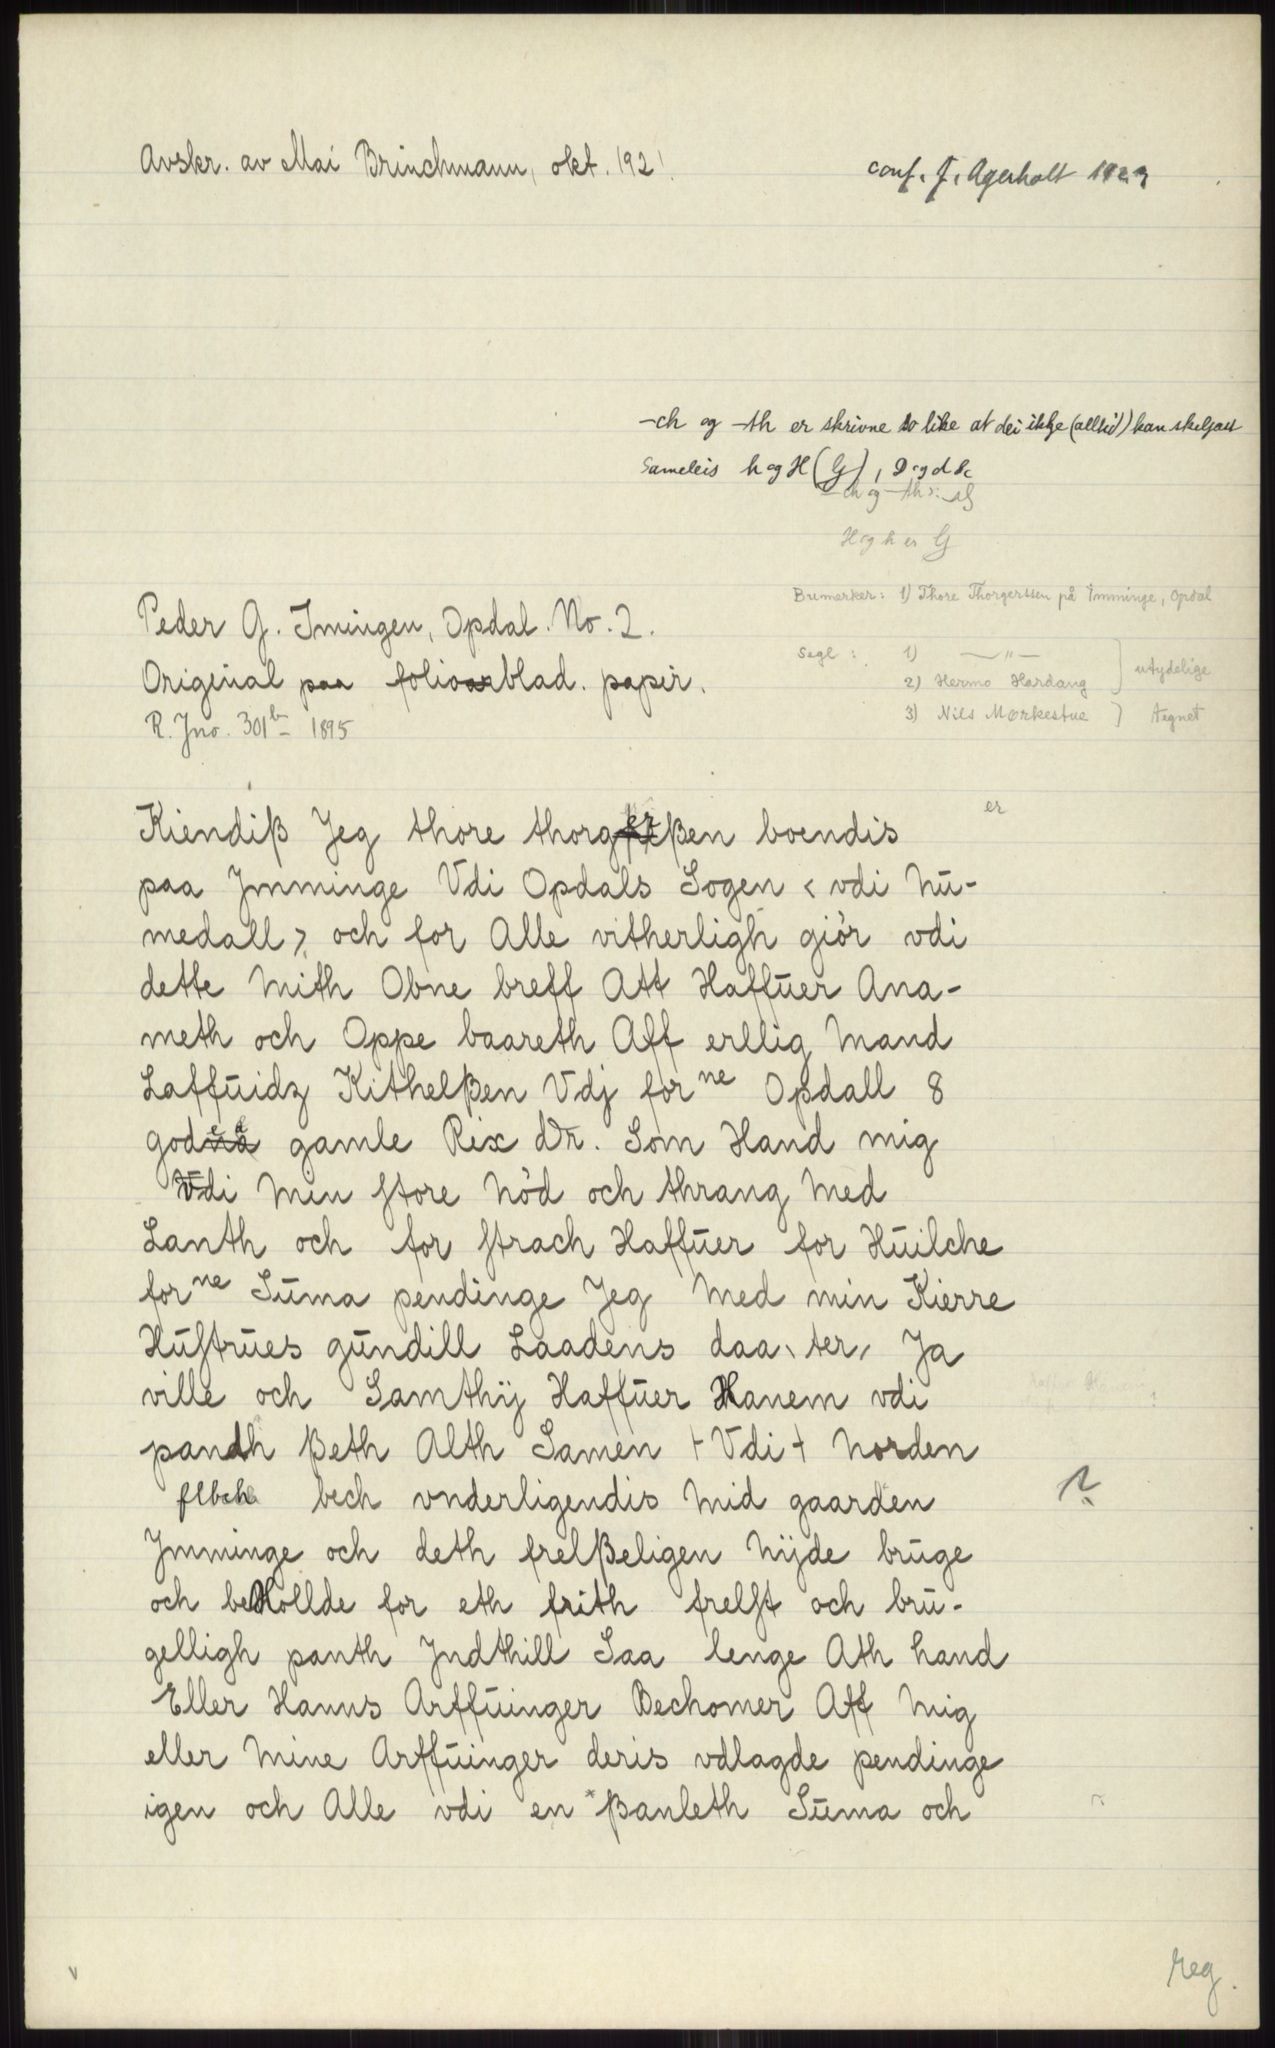 Avskr. av Mai Brinchmann, okt. 192
conf. J. Agerholt 1923
-ch og -th er skrivne so like at dei ikkje (alltid) kan skeljast
Sameleis h og H (G), D og d &c
-ch og -th :
H og h er G
Bumerker: 1) Thore Thorgerssen på Imminge, Opdal
Segl : 1) —„—
2) Hermo Hardang } utydelige
3) Nils Mørkestue } tegnet
Peder G. Imingen, Opdal. No. 2.
Original paa folioarblad. papir.
R. Jno. 301b 1895
er
Kiendiß Jeg thore thorgerßen boendis
paa Jmminge Vdi Opdals Sogen < vdi Nu-
medall >, och for Alle vitherligh giør vdi
dette Mith Obne breff Att Haffuer Ana-
meth och Oppe baareth Aff erllig Mand
Laffuidz Kithelßen Vdj forne Opdall 8
gode gamle Rix dr. Som Hand mig
Vdi Min store Nød och thrang Med
Lanth och for strach Haffuer for Huilche
forne Suma pendinge Jeg Med min Kierre
Hustrues gundill Laadens daa, ter, Ja
ville och Samthÿ Haffuer Hanem vdi
pandh ßeth Alth Samen + Vdi + Norden
bech vnderligendis Mid gaarden
?
Jmminge och deth frelßeligen Nÿde bruge
och beHollde for eth frith frelst och bru-
gelligh panth Jndthill Saa lenge Ath hand
Eller Hanns Arffuinger Bechomer Aff Mig
eller Mine Arffuinger deris vdlagde pendinge
igen och Alle vdi en *ßanleth Suma och
reg.